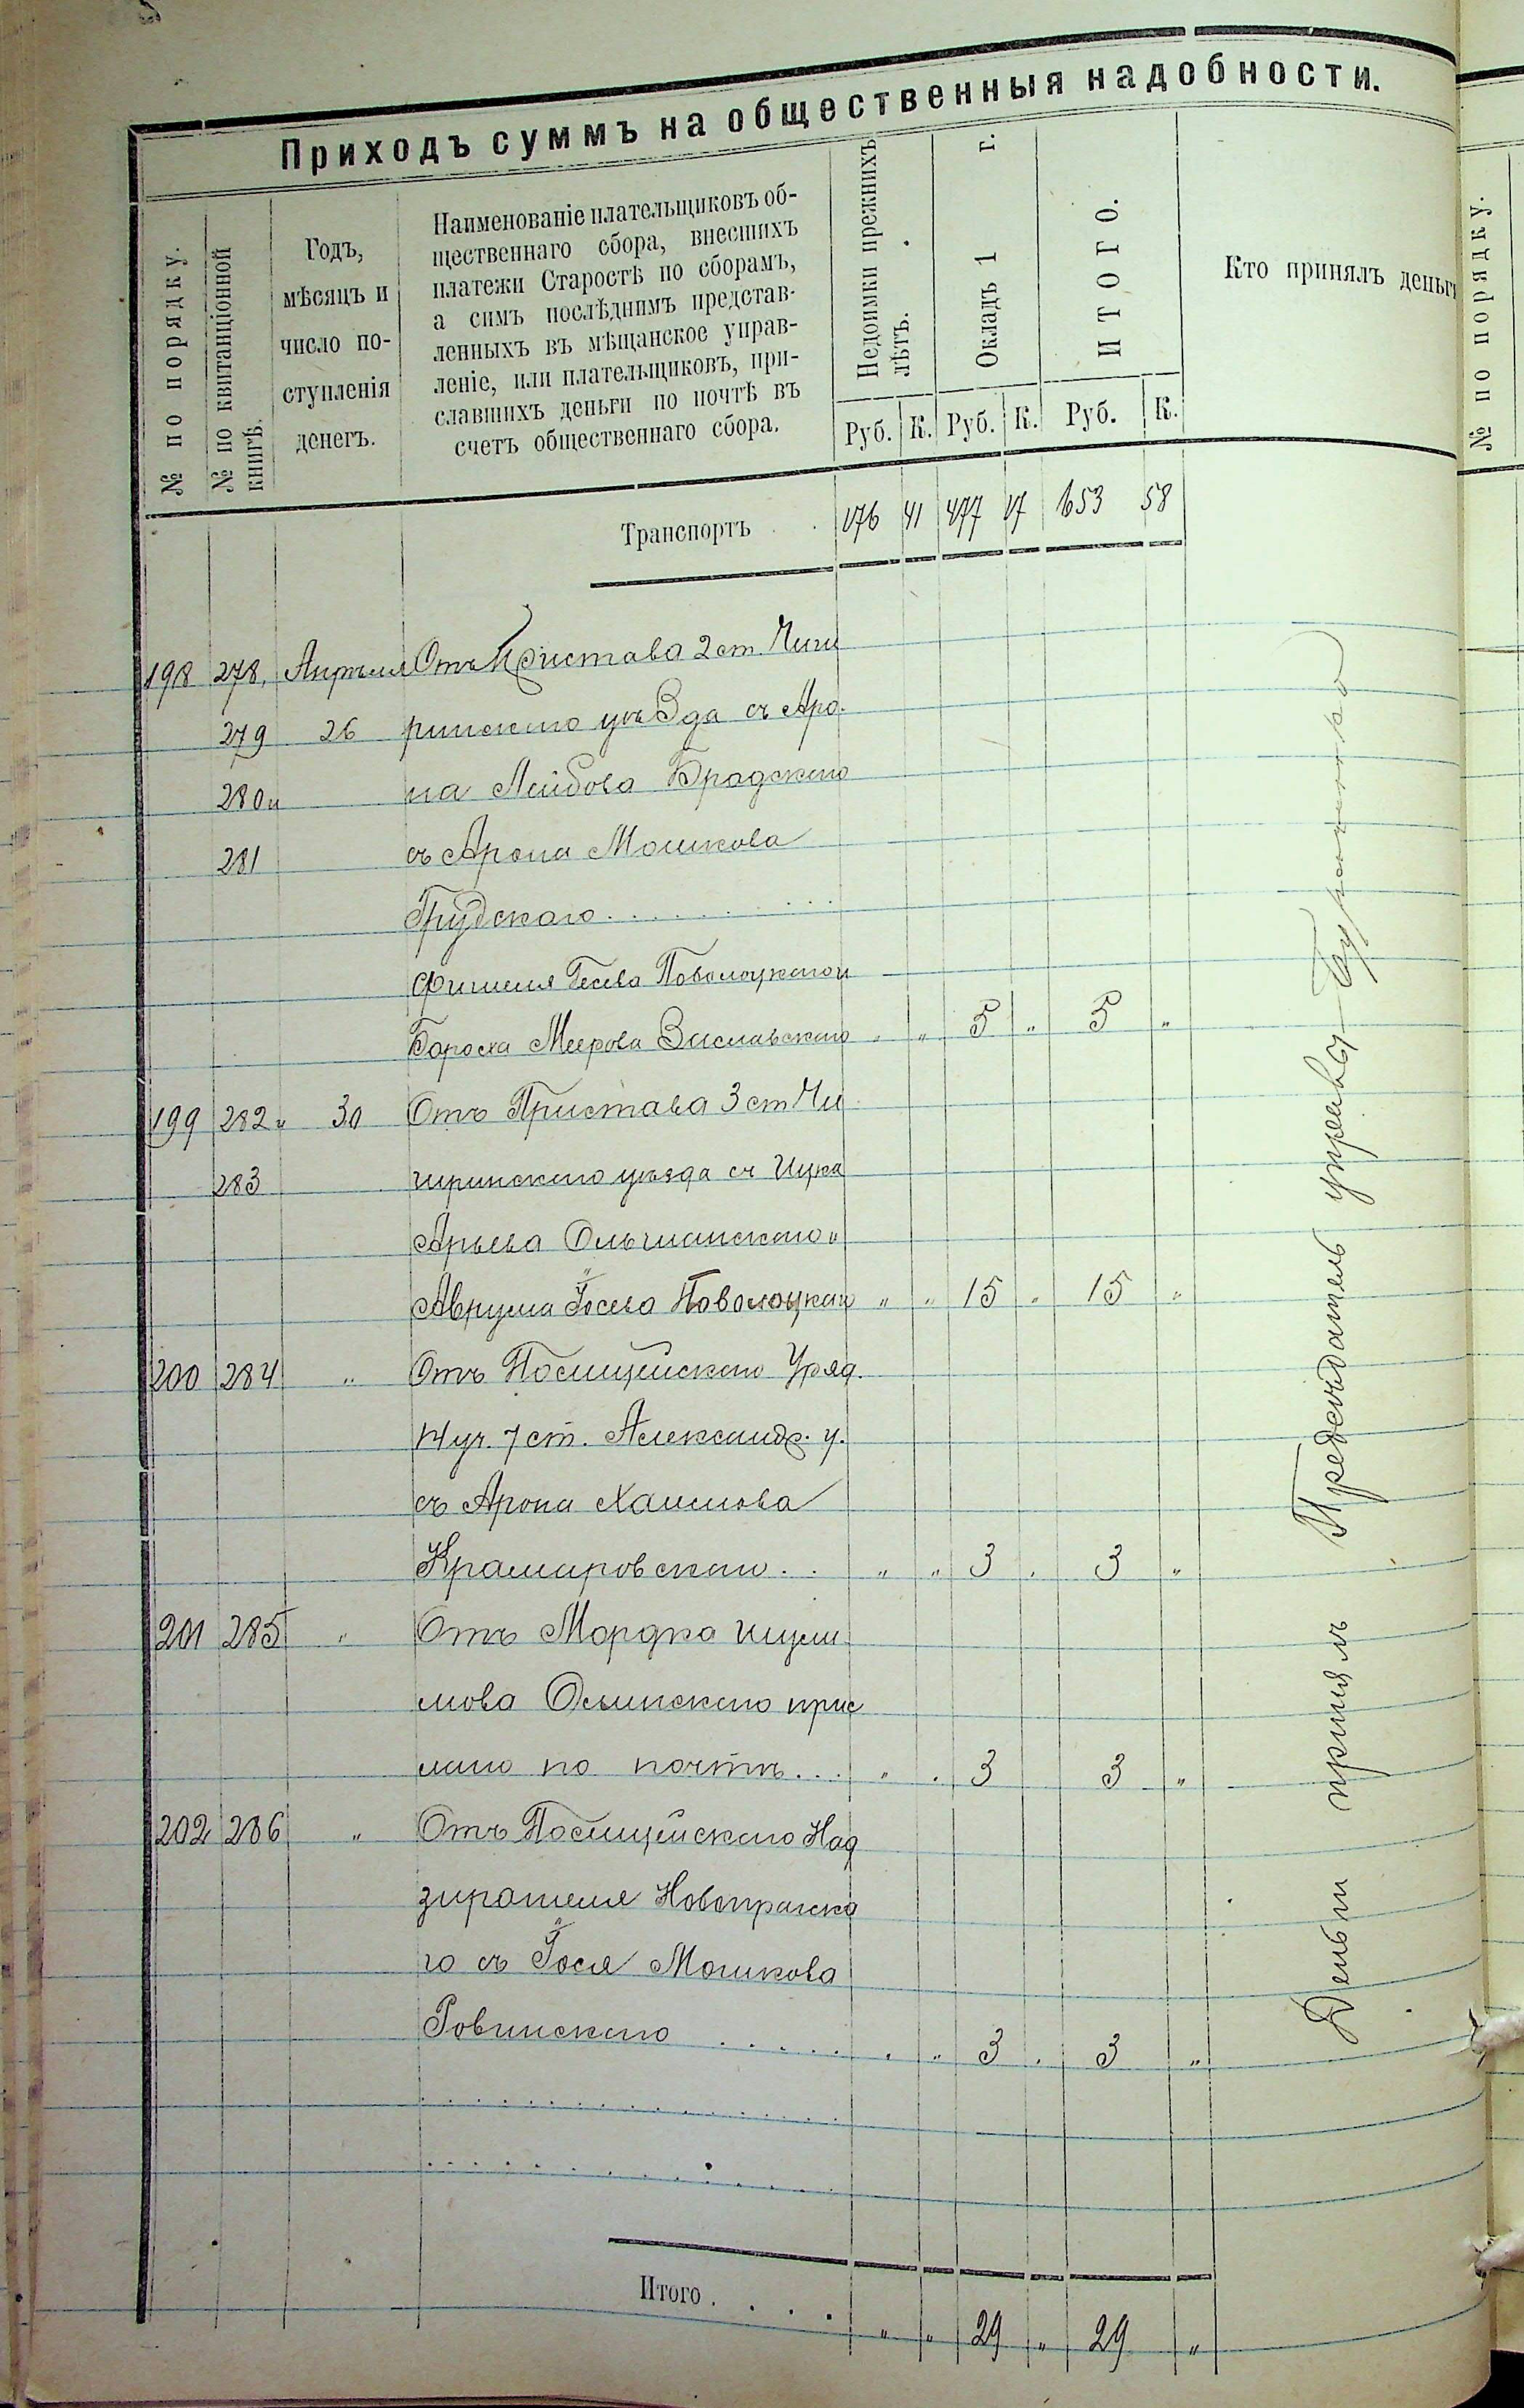 Приходъ суммъ на общественныя надобности.
№ по порядку.
№ по квитанціонной
книгѣ.
Годъ,
мѣсяцъ и
число по-
ступленія
денегъ.
Наименованіе плательщиковъ об-
щественнаго сбора, внесшихъ
платежи Старостѣ по сборамъ,
а симъ послѣднимъ представ-
ленныхъ въ мѣщанское управ-
леніе, или плательщиковъ, при-
славшихъ деньги по почтѣ въ
счетъ общественнаго сбора.
Недоимки прежнихъ
лѣтъ.
Окладъ 1 г.
ИТОГО.
Кто принялъ деньги
Руб. К. Руб. К. Руб. К.
Транспортъ 176 41 477 17 653 58
198 278, Апрѣля Отъ Пристава 2 ст. Чиги
279 26 ринскаго уѣзда съ Аро-
280 и на Лейбова Бродскаго
281 съ Арона Мошкова
Грудскаго
Фишеля Поволоцкаго и
Бороха Меерова Заславскаго " " 5 " 5 "
199 282 и 30 Отъ Пристава 3 ст Чи
283 гиринскаго уѣзда съ Ицка
Арьева Ольшанскаго и
Аврума Іосева Поволоцкаго " " 15 " 15 "
200 284 " Отъ Полицейскаго Уряд.
14 уч. 7 ст. Александр. у.
съ Арона Хаимова
Крамаровскаго . . " " 3 . 3 "
201 285 " Отъ Мордка
мова прис
лано по почтѣ... " . 3 3 "
202 286 " Отъ Полицейскаго Над
зирателя Новопражска
го съ Іося Мошкова
Ровинскаго . . . . . " " 3 . 3 "
Итого . . . . " " 29 " 29 "
Деньги принялъ Предсѣдатель управы
№ по порядку.